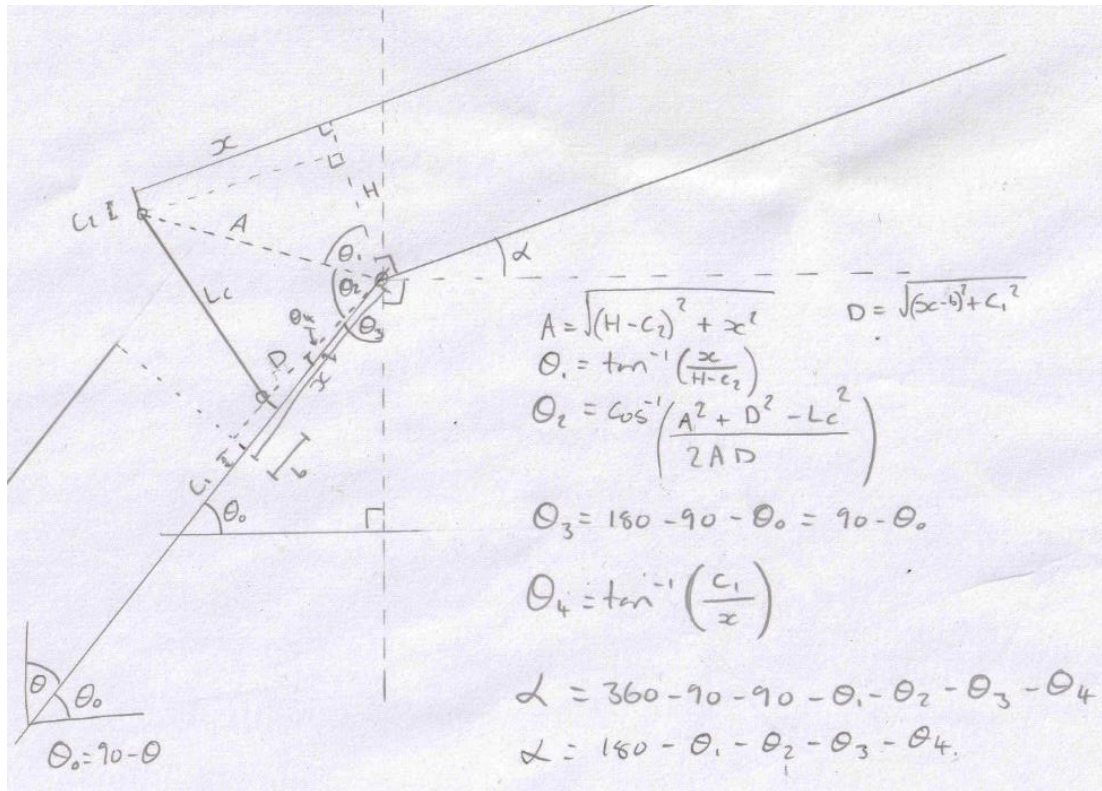 x
H
C₂
A
θ₁
α
θ₂
Lc
θ₄
θ₃
D
x
b
C₁
θ₀
A = √((H-C₂)² + x²)
D = √((x-b)² + C₁²)
θ₁ = tan⁻¹ (x/(H-C₂))
θ₂ = cos⁻¹ ((A² + D² - Lc²)/(2AD))
θ₃ = 180 - 90 - θ₀ = 90 - θ₀
θ₄ = tan⁻¹ (C₁/x)
α = 360 - 90 - 90 - θ₁ - θ₂ - θ₃ - θ₄
α = 180 - θ₁ - θ₂ - θ₃ - θ₄.
θ
θ₀
θ₀ = 90 - θ